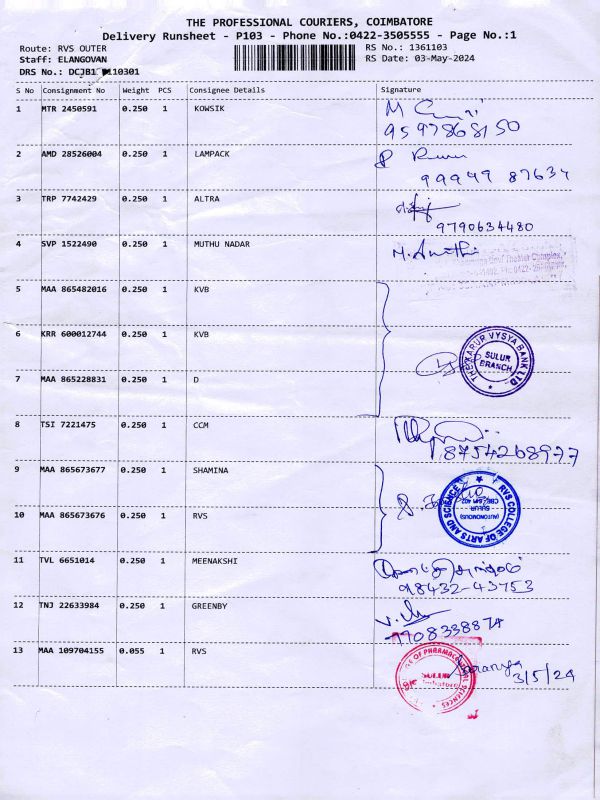 THE PROFESSIONAL COURIERS, COIMBATORE
Delivery Runsheet - P103 - Phone No.:0422-3505555 - Page No.:1
Route: RVS OUTER
RS No.: 1361103
Staff: ELANGOVAN
RS Date: 03-May-2024
DRS No.: DCJB1 110301
S No Consignment No Weight PCS Consignee Details Signature
1 MTR 2450591 0.250 1 KOWSIK
9597868150
2 AMD 28526004 0.250 1 LAMPACK
99949 87634
3 TRP 7742429 0.250 1 ALTRA
9790634480
4 SVP 1522490 0.250 1 MUTHU NADAR
5 MAA 865482016 0.250 1 KVB
6 KRR 600012744 0.250 1 KVB
THE KARUR VYSYA BANK LTD.
SULUR
BRANCH
7 MAA 865228831 0.250 1 D
8 TSI 7221475 0.250 1 CCM
8754268977
9 MAA 865673677 0.250 1 SHAMINA
RVS COLLEGE OF ARTS AND SCIENCE
(AUTONOMOUS)
SULUR
10 MAA 865673676 0.250 1 RVS
11 TVL 6651014 0.250 1 MEENAKSHI
98432-43753
12 TNJ 22633984 0.250 1 GREENBY
7708338874
13 MAA 109704155 0.055 1 RVS
SULUR
Saranya
3/5/24